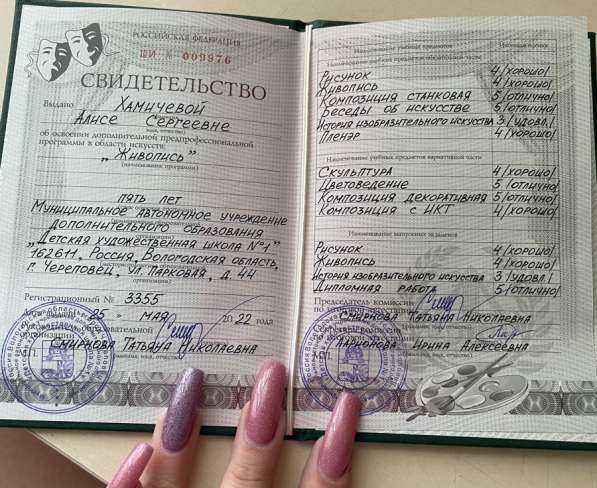 РОССИЙСКАЯ ФЕДЕРАЦИЯ
ШИ № 009976
СВИДЕТЕЛЬСТВО
Выдано ХАМИЧЕВОЙ
АЛИСЕ СЕРГЕЕВНЕ
об освоении дополнительной предпрофессиональной
программы в области искусств:
„ЖИВОПИСЬ"
(наименование программы)
ПЯТЬ ЛЕТ
МУНИЦИПАЛЬНОЕ АВТОНОМНОЕ УЧРЕЖДЕНИЕ
ДОПОЛНИТЕЛЬНОГО ОБРАЗОВАНИЯ
„ДЕТСКАЯ ХУДОЖЕСТВЕННАЯ ШКОЛА №1"
162611, РОССИЯ, ВОЛОГОДСКАЯ ОБЛАСТЬ,
Г. ЧЕРЕПОВЕЦ, УЛ. ПАРКОВАЯ, Д. 44
Регистрационный № 3355
25 МАЯ 2022 года
СМИРНОВА ТАТЬЯНА НИКОЛАЕВНА
М.П.
Наименование учебных предметов Итоговая оценка
Наименование учебных предметов обязательной части
РИСУНОК 4/ХОРОШО/
ЖИВОПИСЬ 4/ХОРОШО/
КОМПОЗИЦИЯ СТАНКОВАЯ 5/ОТЛИЧНО/
БЕСЕДЫ ОБ ИСКУССТВЕ 5/ОТЛИЧНО/
ИСТОРИЯ ИЗОБРАЗИТЕЛЬНОГО ИСКУССТВА 3/УДОВЛ./
ПЛЕНЭР 4/ХОРОШО/
Наименование учебных предметов вариативной части
СКУЛЬПТУРА 4/ХОРОШО/
ЦВЕТОВЕДЕНИЕ 5/ОТЛИЧНО/
КОМПОЗИЦИЯ ДЕКОРАТИВНАЯ 5/ОТЛИЧНО/
КОМПОЗИЦИЯ С ИКТ 4/ХОРОШО/
Наименование выпускных экзаменов
РИСУНОК 4/ХОРОШО/
ЖИВОПИСЬ 4/ХОРОШО/
ИСТОРИЯ ИЗОБРАЗИТЕЛЬНОГО ИСКУССТВА 3/УДОВЛ./
ДИПЛОМНАЯ РАБОТА 5/ОТЛИЧНО/
Председатель комиссии
по итоговой аттестации
СМИРНОВА ТАТЬЯНА НИКОЛАЕВНА
ИРИНА АЛЕКСЕЕВНА
М.П.